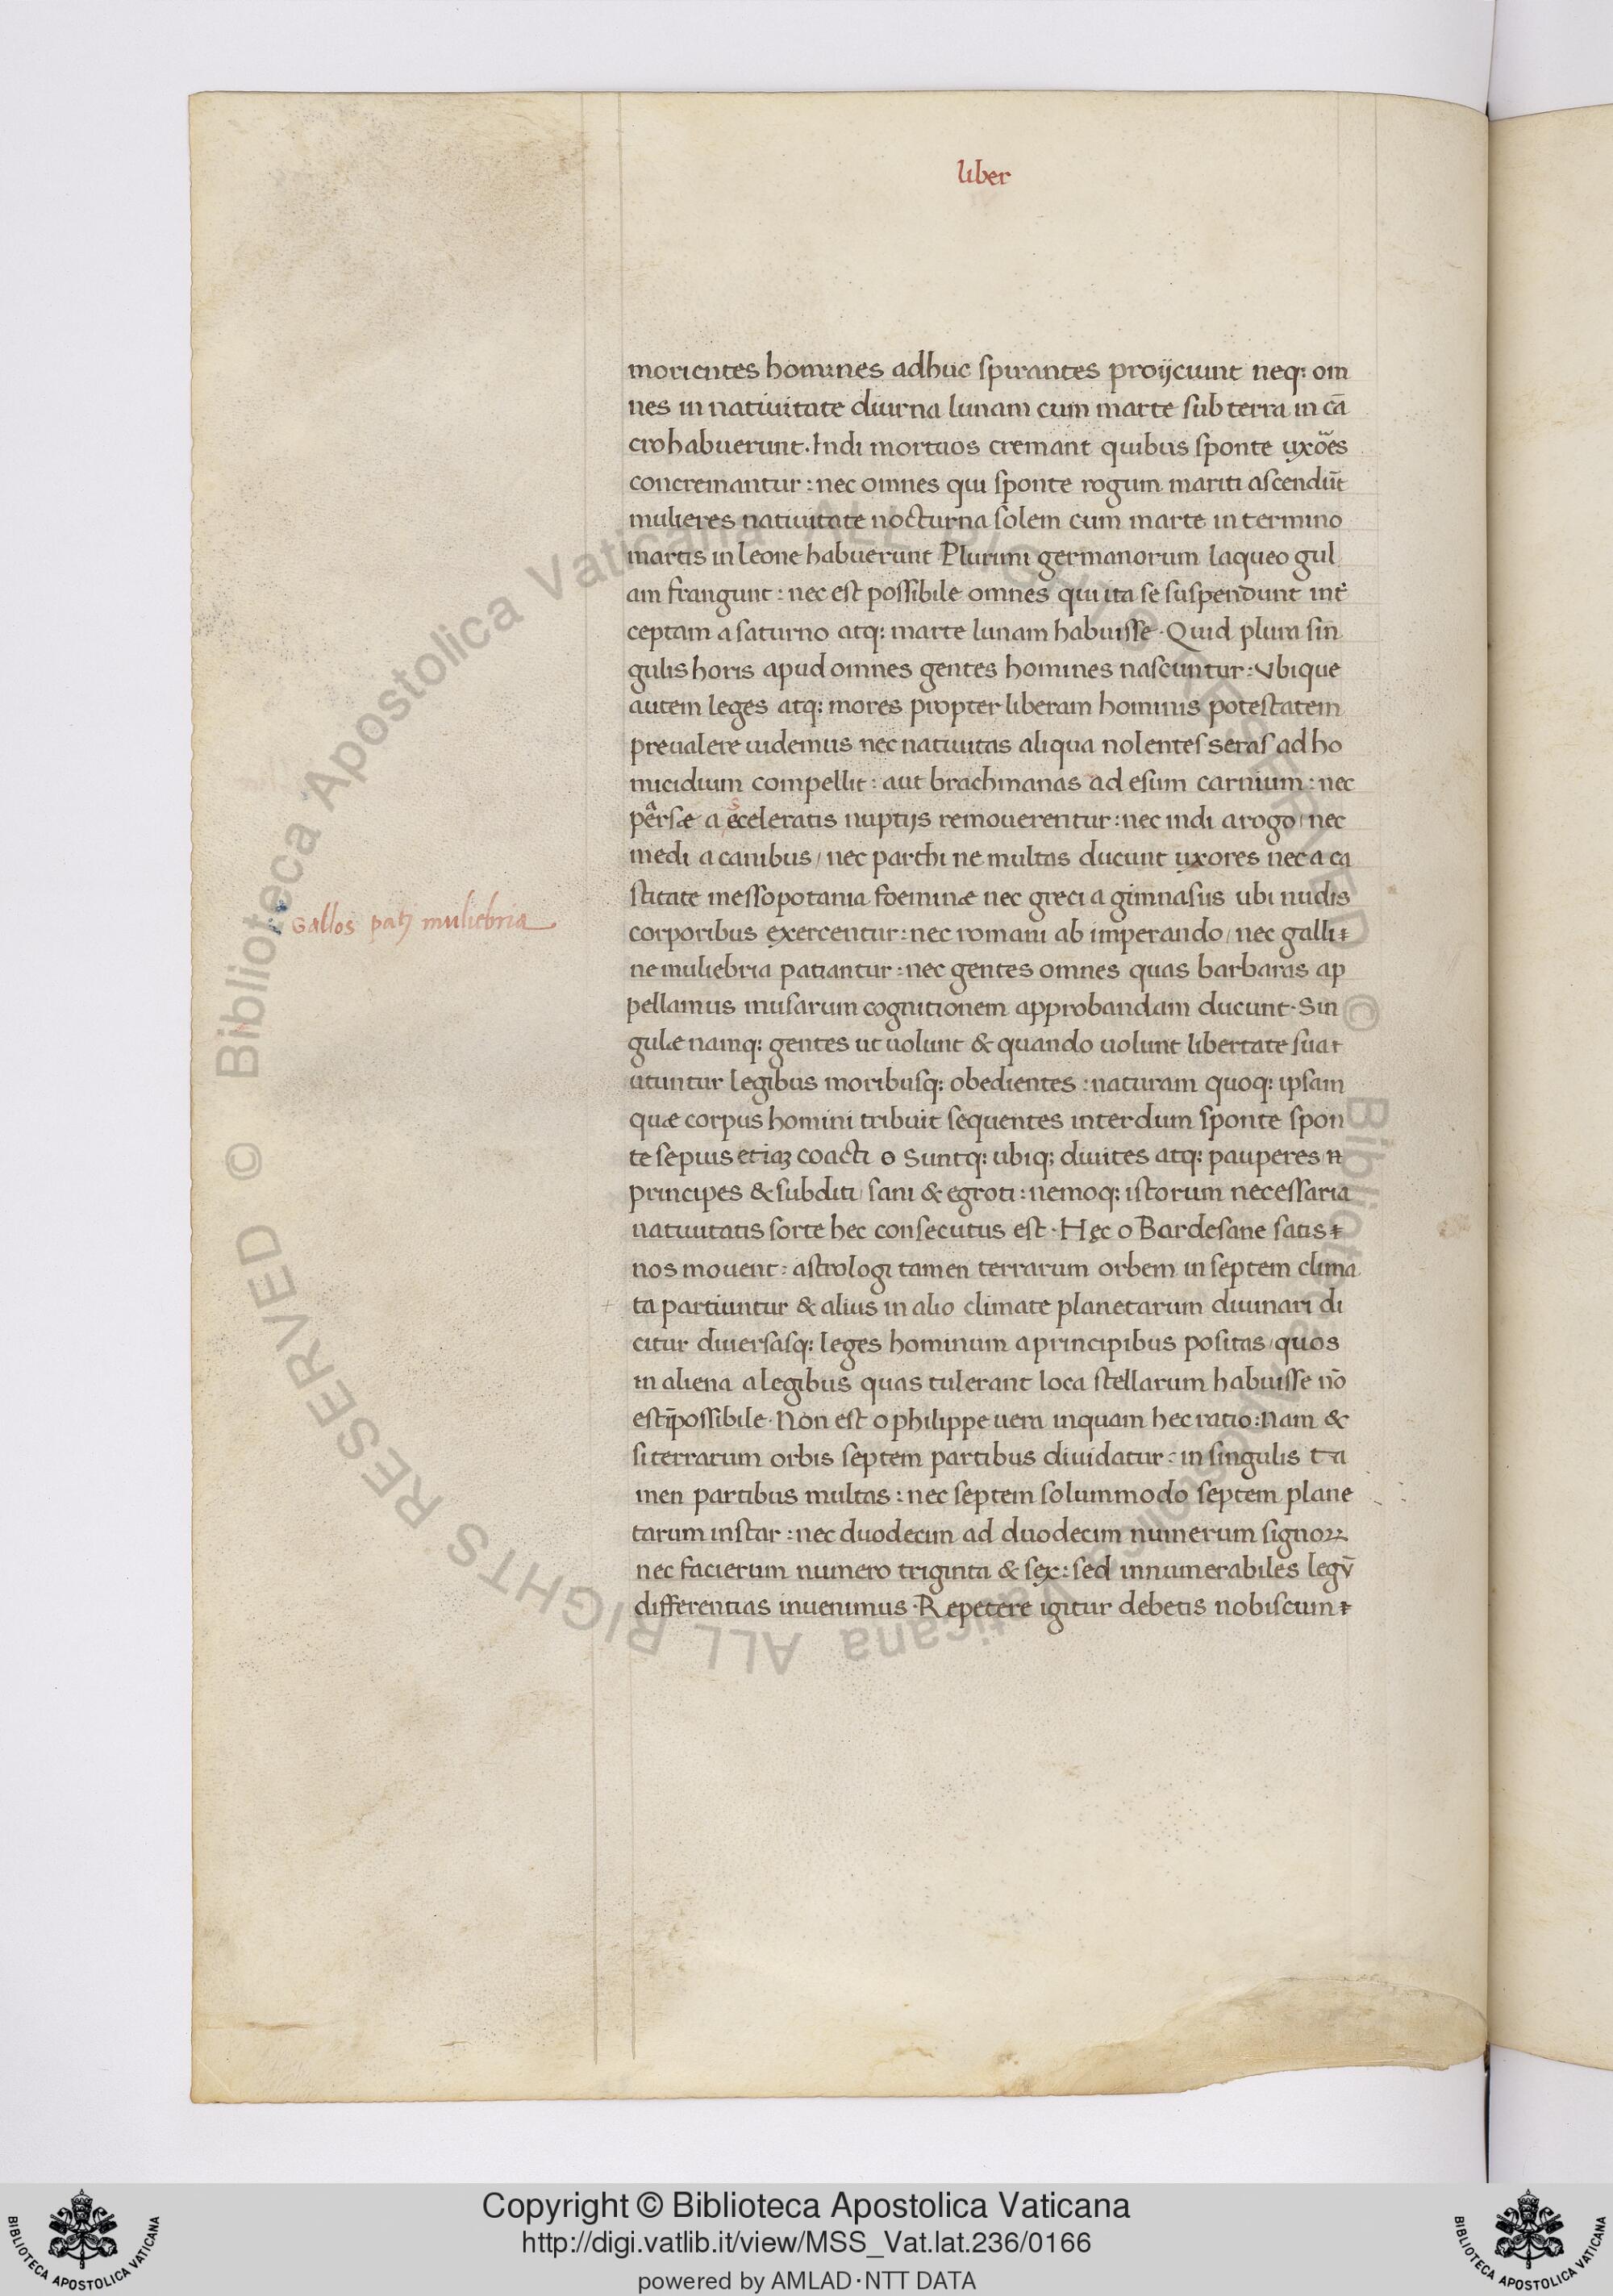 liber
morientes homines adhuc spirantes proijciunt neq: om
nes in natiuitate diurna lunam cum marte sub terra in cā
cro habuerunt. Indi mortuos cremant quibus sponte uxōes
concremantur: nec omnes qui sponte rogum mariti ascendūt
mulieres natiuitate nocturna solem cum marte in termino
martis in leone habuerunt Plurimi germanorum laqueo gul
am frangunt: nec est possibile omnes qui ita se suspendunt int̄
ceptam a saturno atq: marte lunam habuisse. Quid plura sin
gulis horis apud omnes gentes homines nascuntur: Vbique
autem leges atq: mores propter liberam hominis potestatem
preualere uidemus nec natiuitas aliqua nolentes seras ad ho
micidium compellit: aut brachmanas ad esum carnium: nec
persæ a sceleratis nuptijs remouerentur: nec indi a rogo/ nec
medi a canibus/ nec parthi ne multas ducunt uxores nec a ca
stitate messopotania foeminæ nec greci a gimnasiis ubi nudis
Gallos patj muliebria
corporibus exercentur: nec romani ab imperando/ nec galli
ne muliebria patiantur: nec gentes omnes quas barbaras ap
pellamus musarum cognitionem approbandam ducunt. Sin
gulæ namq: gentes ut uolunt & quando uolunt libertate sua
utuntur legibus moribusq: obedientes: naturam quoq: ipsam
quæ corpus homini tribuit sequentes interdum sponte spon
te sepius etiaʒ coacti o Suntq: ubiq; diuites atq: pauperes
principes & subditi/ sani & egroti: nemoq: istorum necessaria
natiuitatis sorte hec consecutus est. Hęc o Bardesane satis
nos mouent: astrologi tamen terrarum orbem in septem clima
ta partiuntur & alius in alio climate planetarum diuinari di
citur diuersasq: leges hominum a principibus positas/ quos
in aliena a legibus quas tulerant loca stellarum habuisse nō
est īpossibile. Non est o philippe uera inquam hec ratio: Nam &
si terrarum orbis septem partibus diuidatur: in singulis ta
men partibus multas: nec septem solummodo septem plane
tarum instar: nec duodecim ad duodecim numerum signoꝝ
nec facierum numero triginta & sex: sed innumerabiles legū
differentias inuenimus. Repetere igitur debetis nobiscum
Copyright © Biblioteca Apostolica Vaticana
http://digi.vatlib.it/view/MSS_Vat.lat.236/0166
powered by AMLAD·NTT DATA